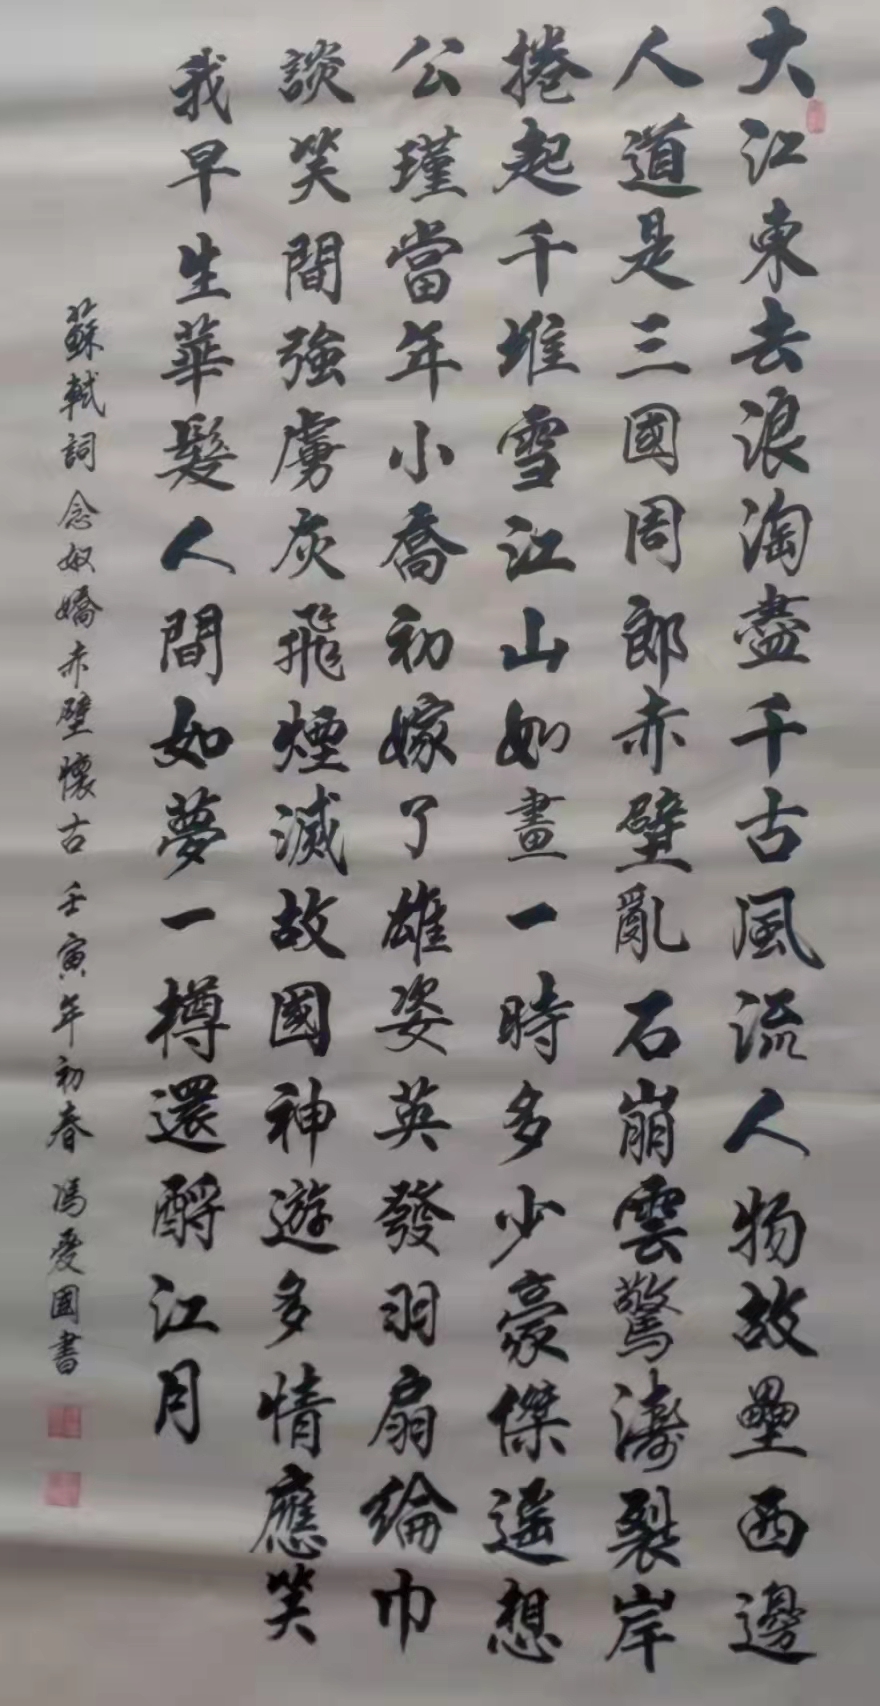 大江東去浪淘盡千古風流人物故壘西邊
人道是三國周郎赤壁亂石崩雲驚濤裂岸
捲起千堆雪江山如畫一時多少豪傑遥想
公瑾當年小喬初嫁了雄姿英發羽扇綸巾
談笑間強虜灰飛煙滅故國神遊多情應笑
我早生華髮人間如夢一樽還酹江月
蘇軾詞念奴嬌赤壁懷古壬寅年初春馮愛國書